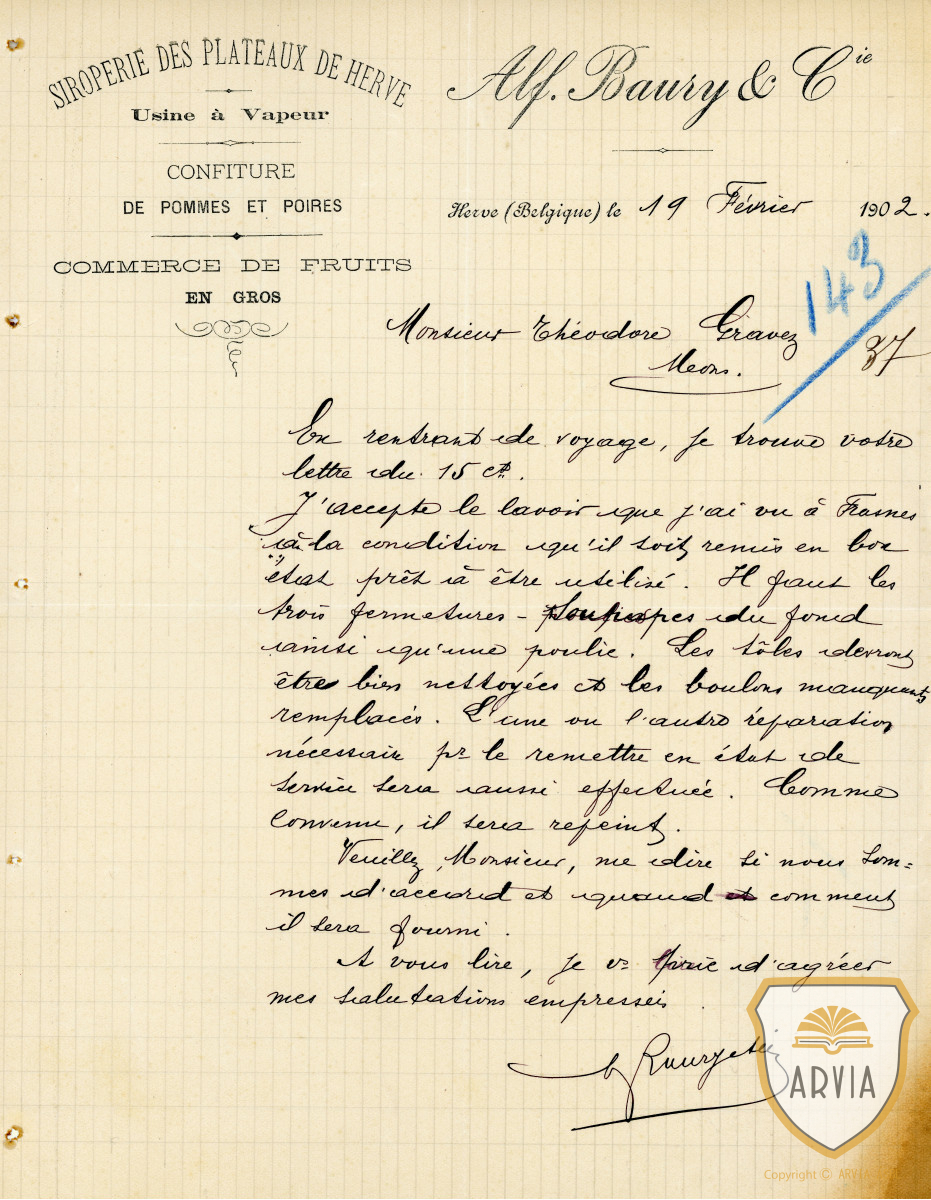 SIROPERIE DES PLATEAUX DE HERVE
Usine à Vapeur
CONFITURE
DE POMMES ET POIRES
COMMERCE DE FRUITS
EN GROS
Alf. Baury & Cie
Herve (Belgique) le 19 Février 1902.
143
37
Monsieur Théodore Gravez
Mons.
En rentrant de voyage, je trouve votre
lettre du 15 ct.
J'accepte le lavoir que j'ai vu à Frasnes
à la condition qu'il soit remis en bon
état prêt à être utilisé. Il faut les
trois fermetures - soupapes du fond
ainsi qu'une poulie. Les tôles devront
être bien nettoyées et les boulons manquants
remplacés. L'une ou l'autre réparation
nécessaire pr le remettre en état de
service sera aussi effectuée. Comme
convenu, il sera repeint.
Veuillez, Monsieur, me dire si nous som=
mes d'accord et quand et comment
il sera fourni.
A vous lire, je vs prie d'agréer
mes salutations empressées.
Baury & Cie
ARVIA
Copyright © ARVIA